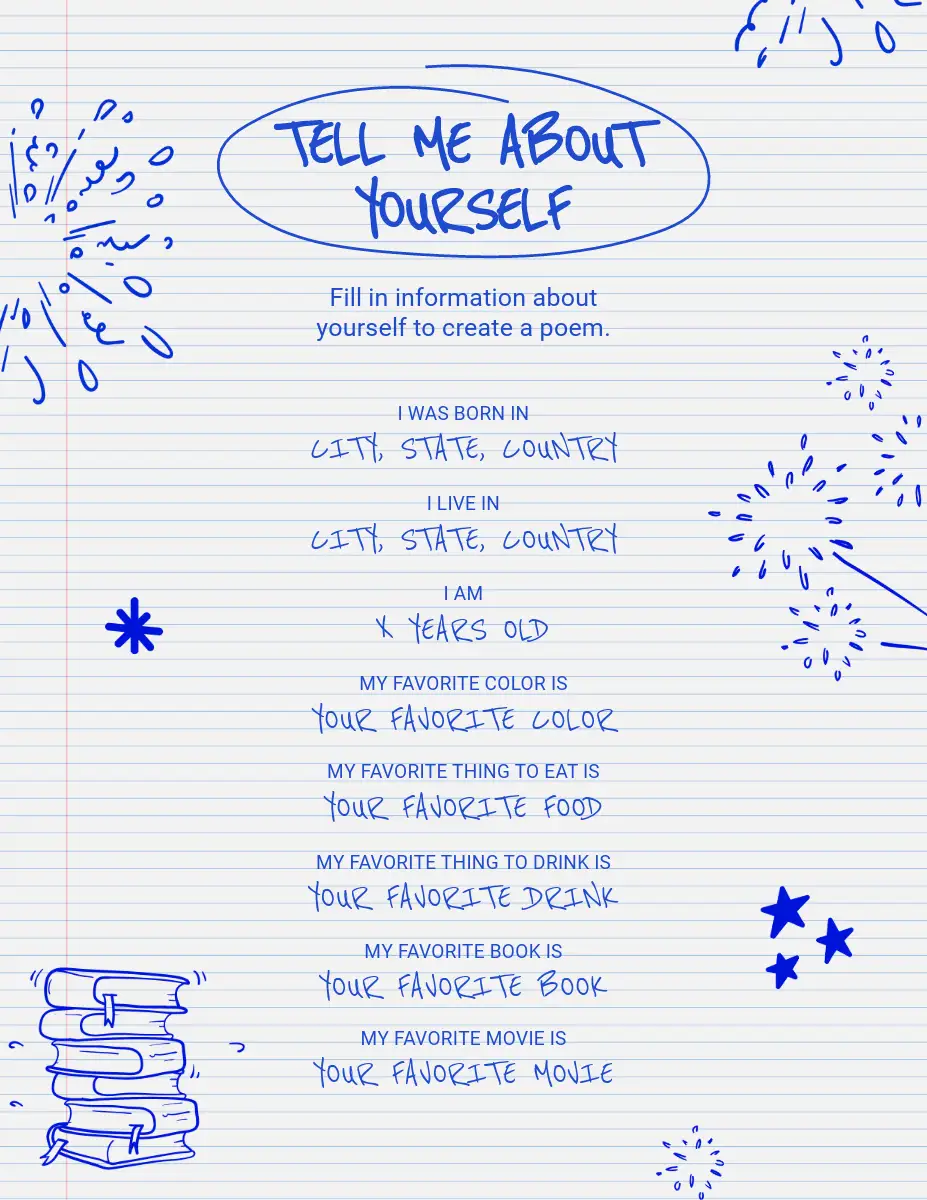 TELL ME ABOUT
YOURSELF
Fill in information about
yourself to create a poem.
I WAS BORN IN
CITY, STATE, COUNTRY
I LIVE IN
CITY, STATE, COUNTRY
I AM
X YEARS OLD
MY FAVORITE COLOR IS
YOUR FAVORITE COLOR
MY FAVORITE THING TO EAT IS
YOUR FAVORITE FOOD
MY FAVORITE THING TO DRINK IS
YOUR FAVORITE DRINK
MY FAVORITE BOOK IS
YOUR FAVORITE BOOK
MY FAVORITE MOVIE IS
YOUR FAVORITE MOVIE